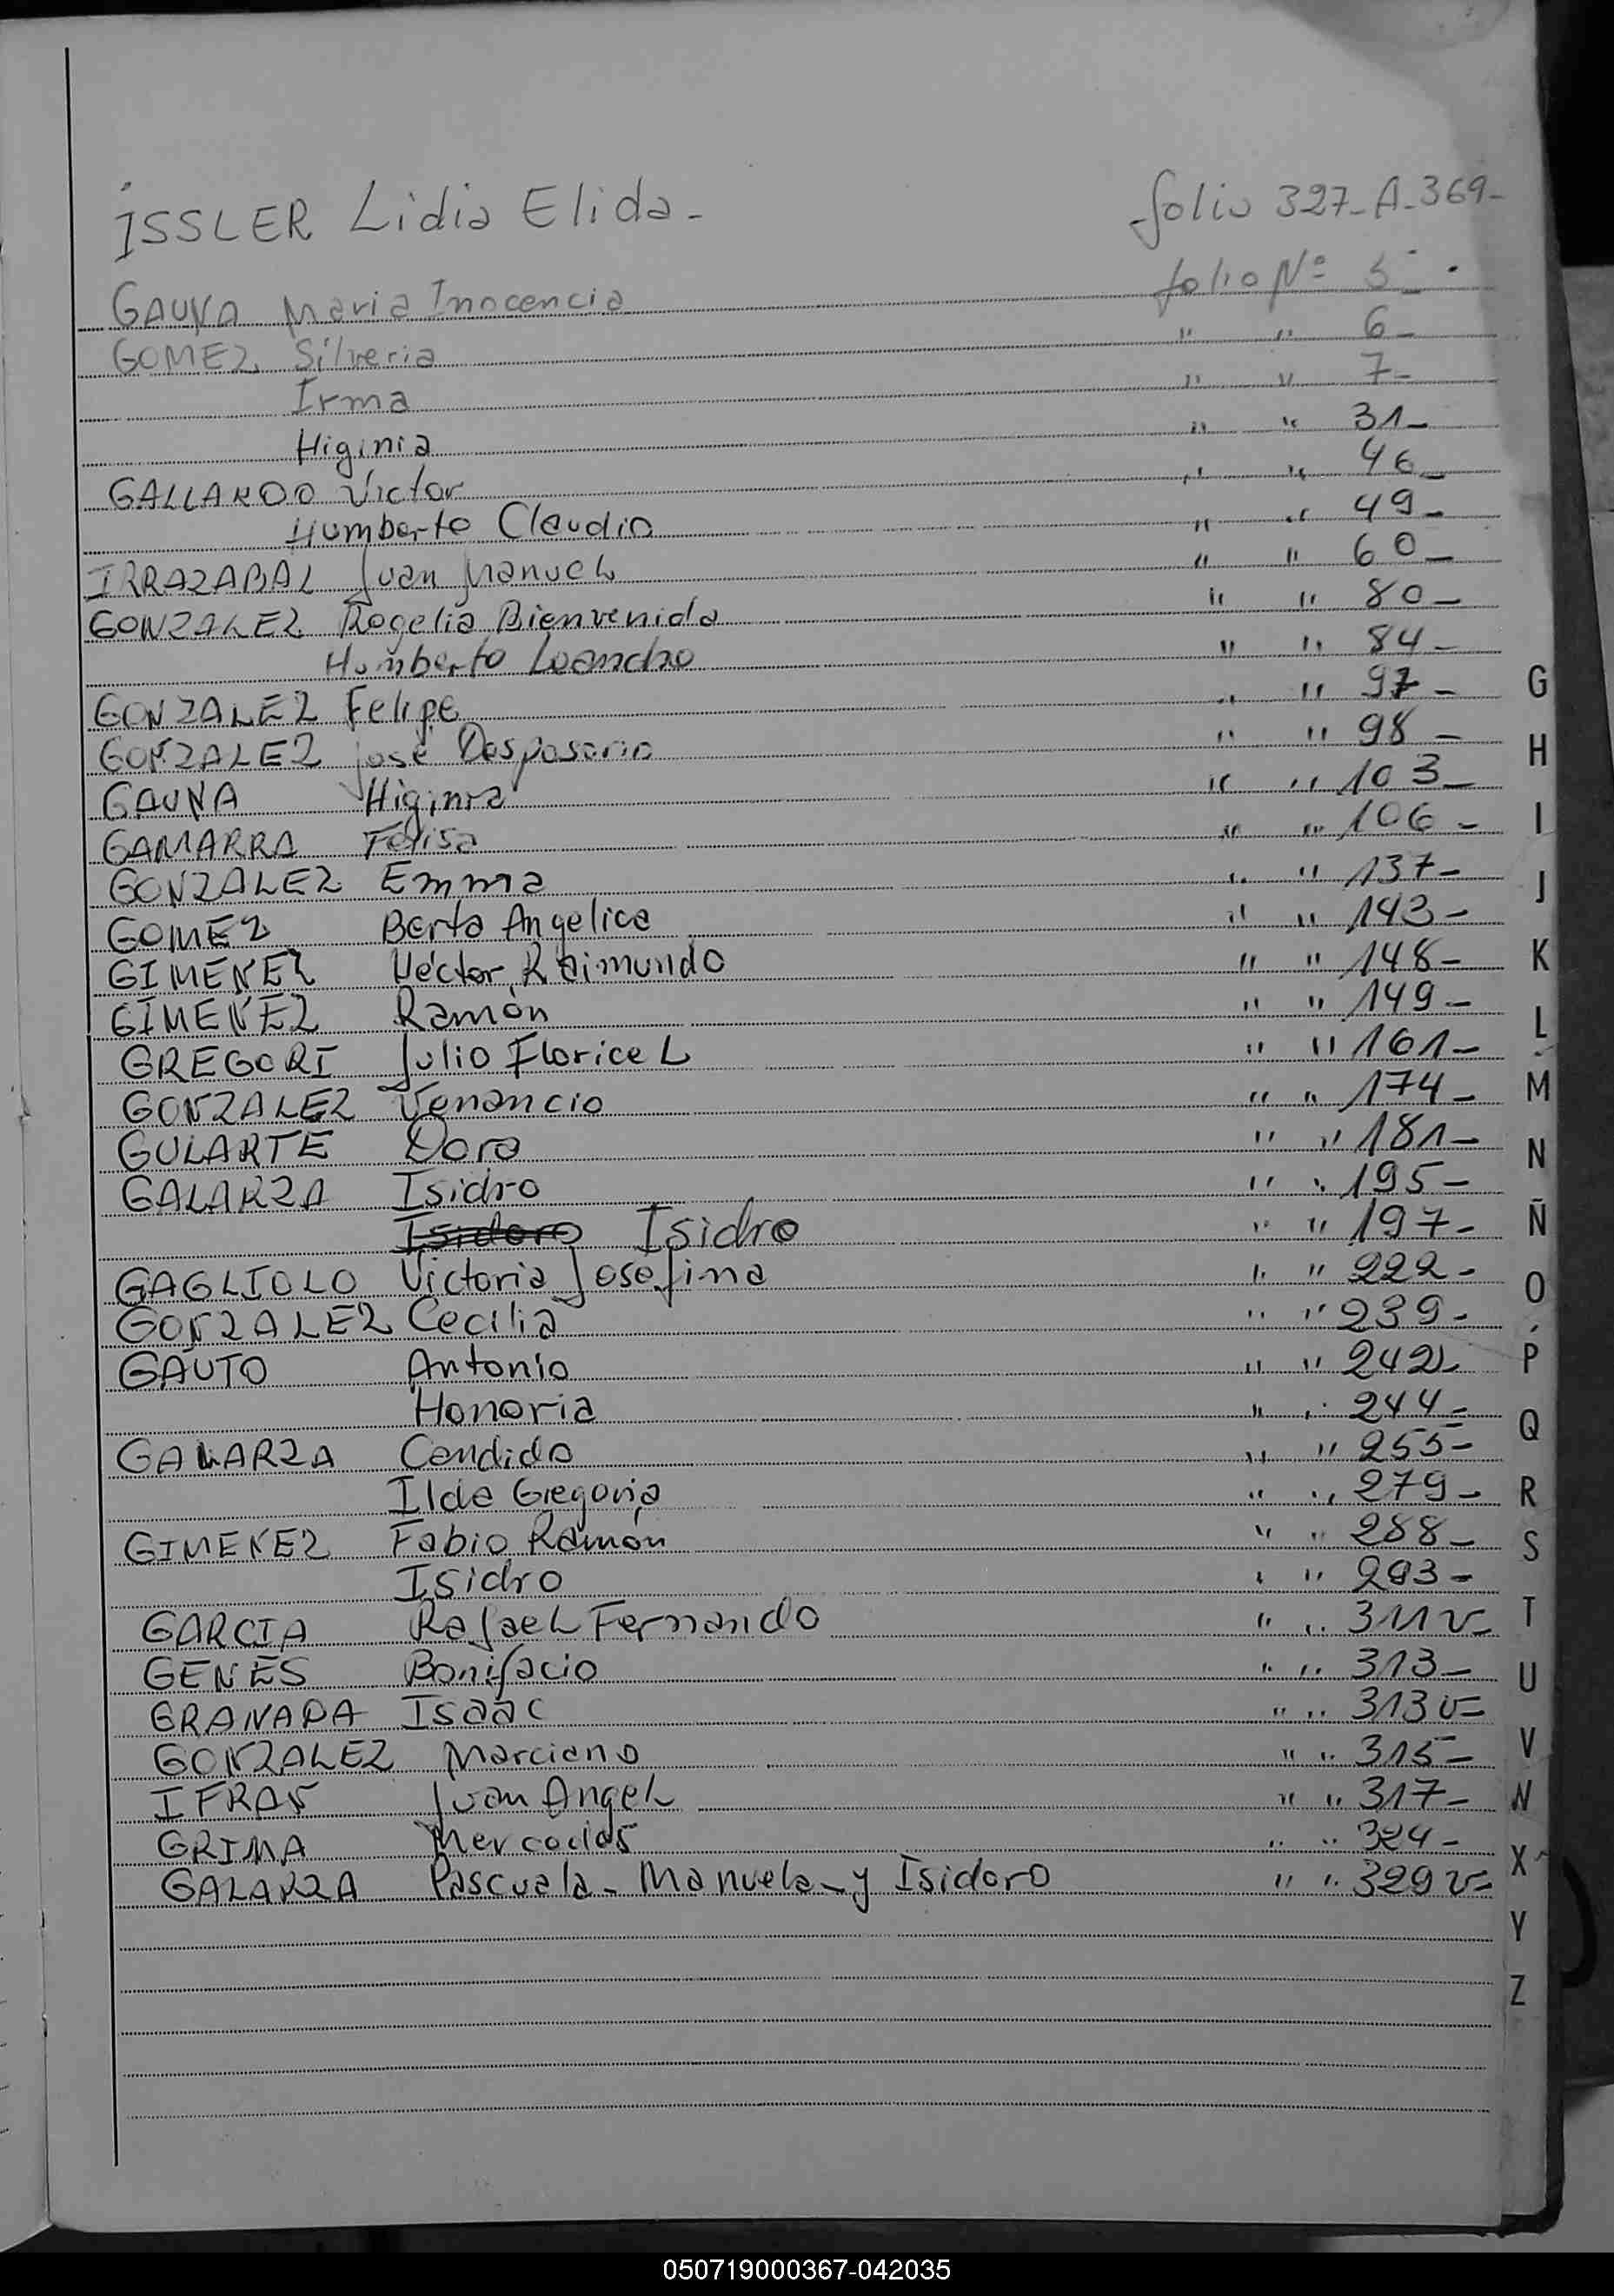 ISSLER Lidia Elida - folio 327-A-369-
GAUNA Maria Inocencia folio Nº 5-
GOMEZ Silveria " " 6-
Irma " " 7-
Higinia " " 31-
GALLARDO Victor " " 46-
Humberto Claudio " " 49-
IRRAZABAL Juan Manuel " " 60-
GONZALEZ Rogelia Bienvenida " " 80-
Humberto Leandro " " 84-
GONZALEZ Felipe " " 97-
GONZALEZ José Desposorio " " 98-
GAUNA Higinia " " 103-
GAMARRA Felisa " " 106-
GONZALEZ Emma " " 137-
GOMEZ Berta Angelica " " 143-
GIMENEZ Héctor Raimundo " " 148-
GIMENEZ Ramón " " 149-
GREGORI Julio Floricel " " 161-
GONZALEZ Venancio " " 174-
GULARTE Dora " " 181-
GALARZA Isidro " " 195-
Isidoro Isidro " " 197-
GAGLIOLO Victoria Josefina " " 222-
GONZALEZ Cecilia " " 239-
GAUTO Antonio " " 242-
Honoria " " 244-
GALARZA Candido " " 255-
Ilda Gregoria " " 279-
GIMENEZ Fabio Ramón " " 288-
Isidro " " 293-
GARCIA Rafael Fernando " " 311v-
GENES Bonifacio " " 313-
GRANADA Isaac " " 313v-
GONZALEZ Marciano " " 315-
IFRAN Juan Angel " " 317-
GRIMA Mercedes " " 324-
GALARZA Pascuala - Manuela - y Isidoro " " 329v-
G
H
I
J
K
L
M
N
Ñ
O
P
Q
R
S
T
U
V
W
X
Y
Z
050719000367-042035